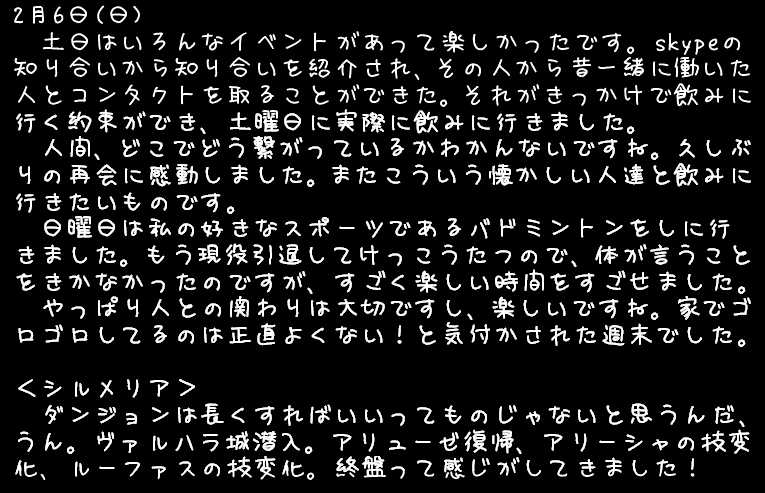 2月6日(日)
　土日はいろんなイベントがあって楽しかったです。skypeの
知り合いから知り合いを紹介され、その人から昔一緒に働いた
人とコンタクトを取ることができた。それがきっかけで飲みに
行く約束ができ、土曜日に実際に飲みに行きました。
　人間、どこでどう繋がっているかわかんないですね。久しぶ
りの再会に感動しました。またこういう懐かしい人達と飲みに
行きたいものです。
　日曜日は私の好きなスポーツであるバドミントンをしに行
きました。もう現役引退してけっこうたつので、体が言うこと
をきかなかったのですが、すごく楽しい時間をすごせました。
　やっぱり人との関わりは大切ですし、楽しいですね。家でゴ
ロゴロしてるのは正直よくない！と気付かされた週末でした。

＜シルメリア＞
　ダンジョンは長くすればいいってものじゃないと思うんだ、
うん。ヴァルハラ城潜入。アリューゼ復帰、アリーシャの技変
化、ルーファスの技変化。終盤って感じがしてきました！